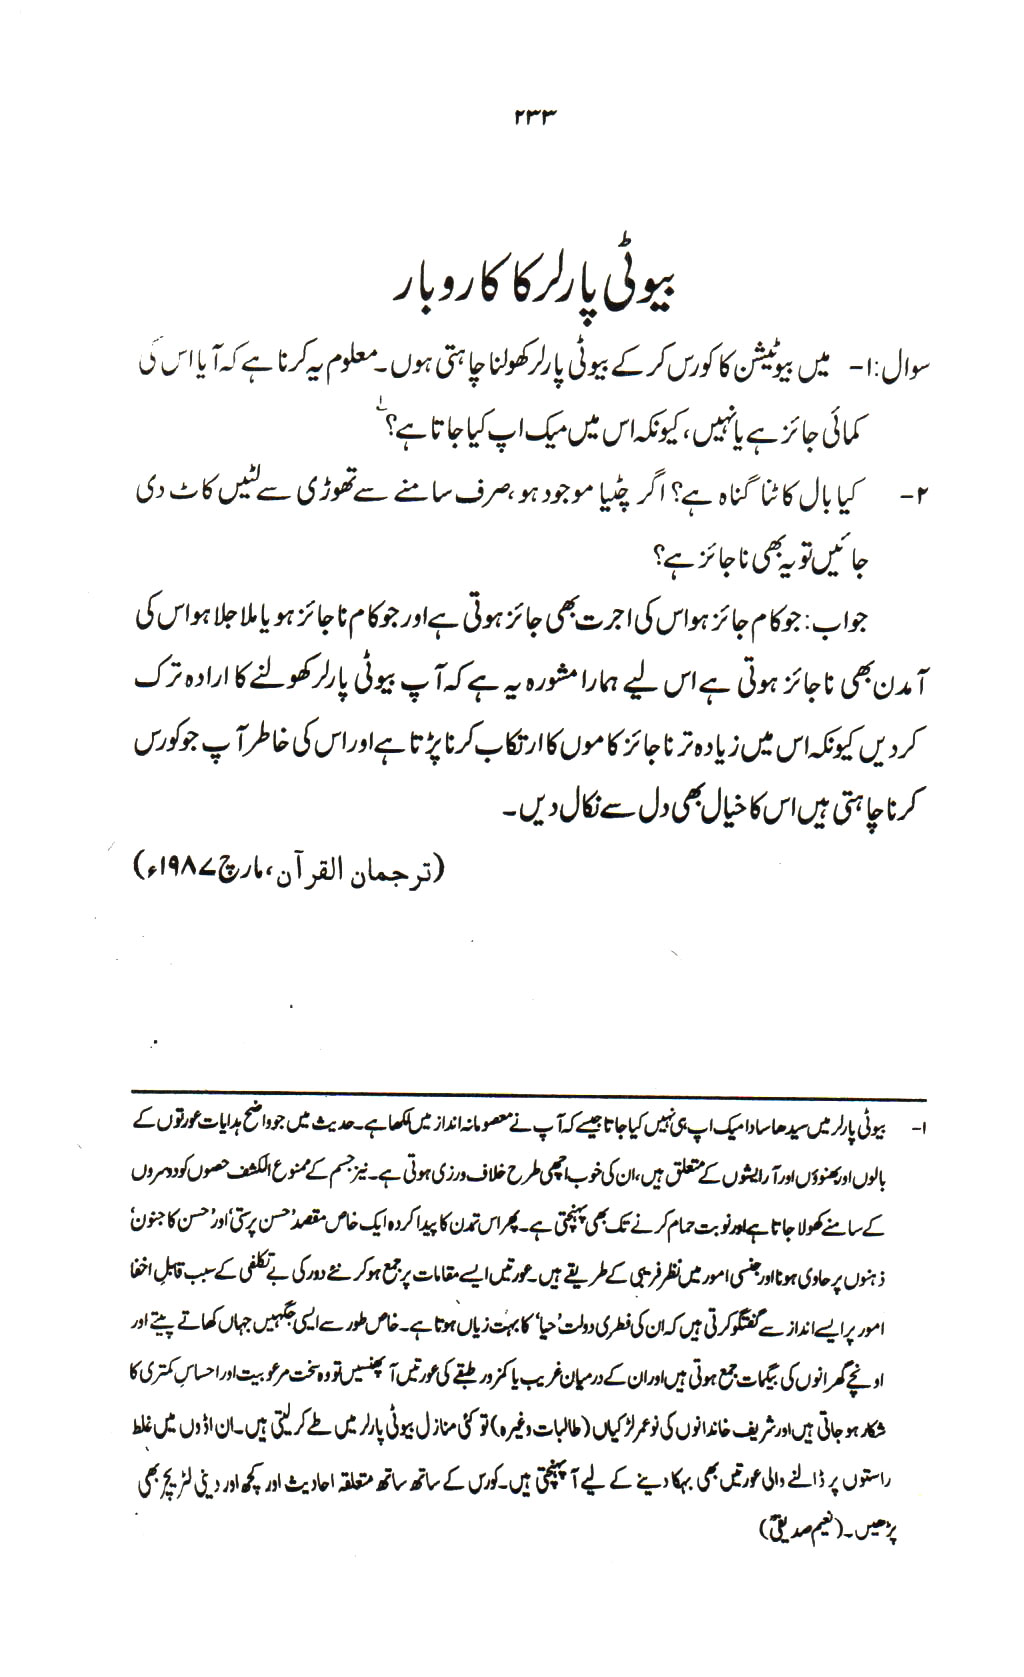 ۲۳۳
بیوٹی پارلر کا کاروبار
سوال:۱- میں بیوٹیشن کا کورس کر کے بیوٹی پارلر کھولنا چاہتی ہوں۔ معلوم یہ کرنا ہے کہ آیا اس کی
کمائی جائز ہے یا نہیں، کیونکہ اس میں میک اپ کیا جاتا ہے؟ ۱
۲- کیا بال کاٹنا گناہ ہے؟ اگر چٹیا موجود ہو، صرف سامنے سے تھوڑی سے لٹیں کاٹ دی
جائیں تو یہ بھی ناجائز ہے؟
جواب: جو کام جائز ہو اس کی اجرت بھی جائز ہوتی ہے اور جو کام ناجائز ہو یا ملا جلا ہو اس کی
آمدن بھی ناجائز ہوتی ہے اس لیے ہمارا مشورہ یہ ہے کہ آپ بیوٹی پارلر کھولنے کا ارادہ ترک
کردیں کیونکہ اس میں زیادہ تر ناجائز کاموں کا ارتکاب کرنا پڑتا ہے اور اس کی خاطر آپ جو کورس
کرنا چاہتی ہیں اس کا خیال بھی دل سے نکال دیں۔
(ترجمان القرآن، مارچ ۱۹۸۷ء)
۱- بیوٹی پارلر میں سیدھا سادا میک اپ ہی نہیں کیا جاتا جیسے کہ آپ نے معصومانہ انداز میں لکھا ہے۔ حدیث میں جو واضح ہدایات عورتوں کے
بالوں اور بھنوؤں اور آرایشوں کے متعلق ہیں، ان کی خوب اچھی طرح خلاف ورزی ہوتی ہے۔ نیز جسم کے ممنوع الکشف حصوں کو دوسروں
کے سامنے کھولا جاتا ہے اور نوبت حمام کرنے تک بھی پہنچتی ہے۔ پھر اس تمدن کا پیدا کردہ ایک خاص مقصد 'حسن پرستی' اور 'حسن کا جنون'
ذہنوں پر حاوی ہونا اور جنسی امور میں نظر فریبی کے طریقے ہیں۔ عورتیں ایسے مقامات پر جمع ہو کر نئے دور کی بے تکلفی کے سبب قابلِ اخفا
امور پر ایسے انداز سے گفتگو کرتی ہیں کہ ان کی فطری دولت 'حیا' کا بہت زیاں ہوتا ہے۔ خاص طور سے ایسی جگہیں جہاں کھاتے پیتے اور
اونچے گھرانوں کی بیگمات جمع ہوتی ہیں اور ان کے درمیان غریب یا کمزور طبقے کی عورتیں آ پھنسیں تو وہ سخت مرعوبیت اور احساسِ کمتری کا
شکار ہو جاتی ہیں اور شریف خاندانوں کی نوعمر لڑکیاں (طالبات وغیرہ) تو کئی منازل بیوٹی پارلر میں طے کر لیتی ہیں۔ ان اڈوں میں غلط
راستوں پر ڈالنے والی عورتیں بھی بہکا دینے کے لیے آ پہنچتی ہیں۔ کورس کے ساتھ ساتھ متعلقہ احادیث اور کچھ اور دینی لٹریچر بھی
پڑھیں۔ (نعیم صدیقیؒ)